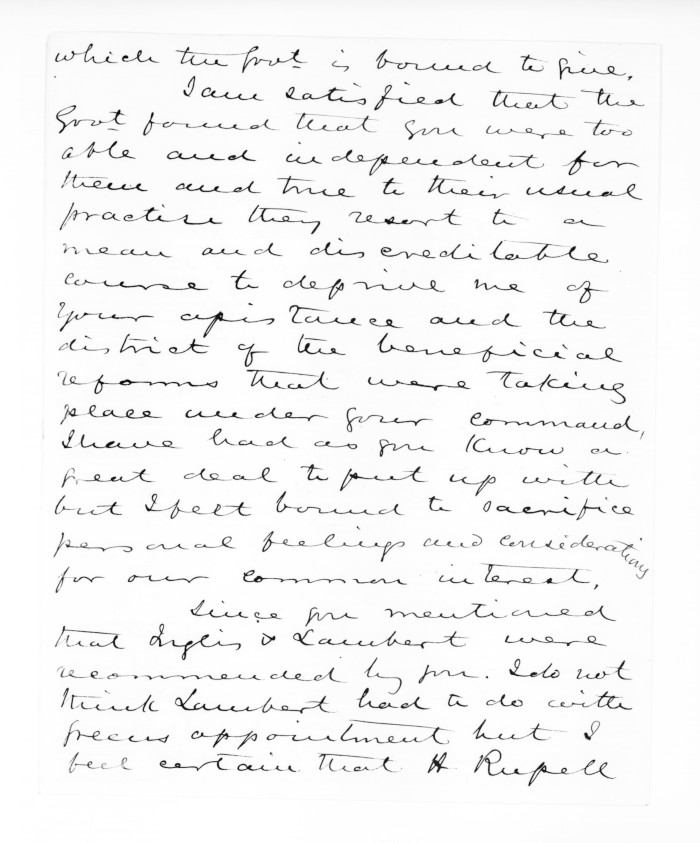 which the Govt is bound to give.
I am satisfied that the
Govt found that you were too
able and independent for
them and true to their usual
practise they resort to a
mean and discreditable
course to deprive me of
Your assistance and the
district of the beneficial
reforms that were taking
place under your command,
I have had as you Know a
great deal to put up with
but I felt bound to sacrifice
personal feelings and considerations
for our common interest,
Since you mentioned
that Inglis & Lambert were
recommended by you. I do not
think Lambert had to do with
Greens appointment but I
feel certain that H Russell